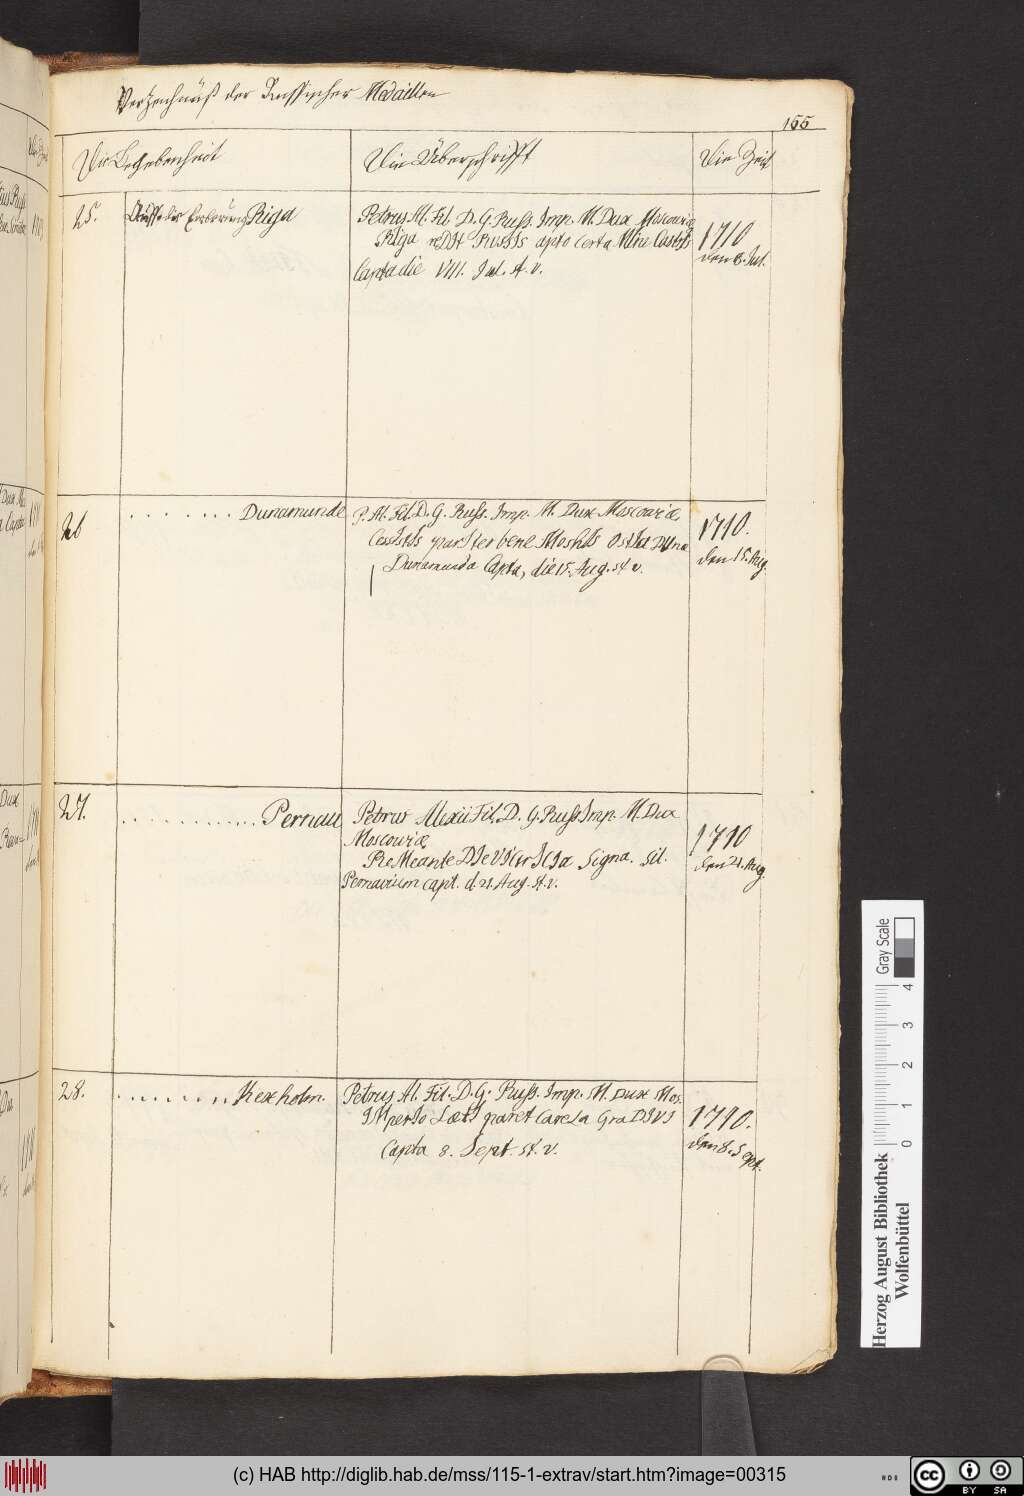 Verzeichnüß der Russischer Medaillen
155
Die Begebenheit
Die Überschrifft
Die Zeit
25.
Auff der Eroberung Riga
Petrus Al. Fil. D. G. Russ. Imp. M. Dux Moscoviæ
Riga reDIt RussIs apto Certa
Capta die VIII. Jul. st. v.
1710
den 8. Jul.
26
. . . . . . . . Dunamunde
P. Al. Fil. D. G. Russ. Imp. M. Dux Moscoviæ,
CessIstIs parIter bene MoshIs ostIa Duna
Dunamunda Capta, die 15. Aug. st v.
1710.
den 15. Aug.
27.
. . . . . . . . . . . . Pernau
Petrus Alexii Fil. D. G. Russ Imp. M. Dux
Moscoviæ
ReMeante DIe VICtrICIa Signa. Sil.
Pernavium capt. d. 21. Aug. st. v.
1710
den 21. Aug.
28.
. . . . . . . . Kexholm.
Petrus Al. Fil. D. G. Russ. Imp. M. Dux Mos.
IMperIo LætI paret CareLa GraDIVI
Capta 8. Sept. st. v.
1710.
den 8. Sept.
Gray Scale
0 1 2 3 4
Herzog August Bibliothek
Wolfenbüttel
(c) HAB http://diglib.hab.de/mss/115-1-extrav/start.htm?image=00315
cc BY SA